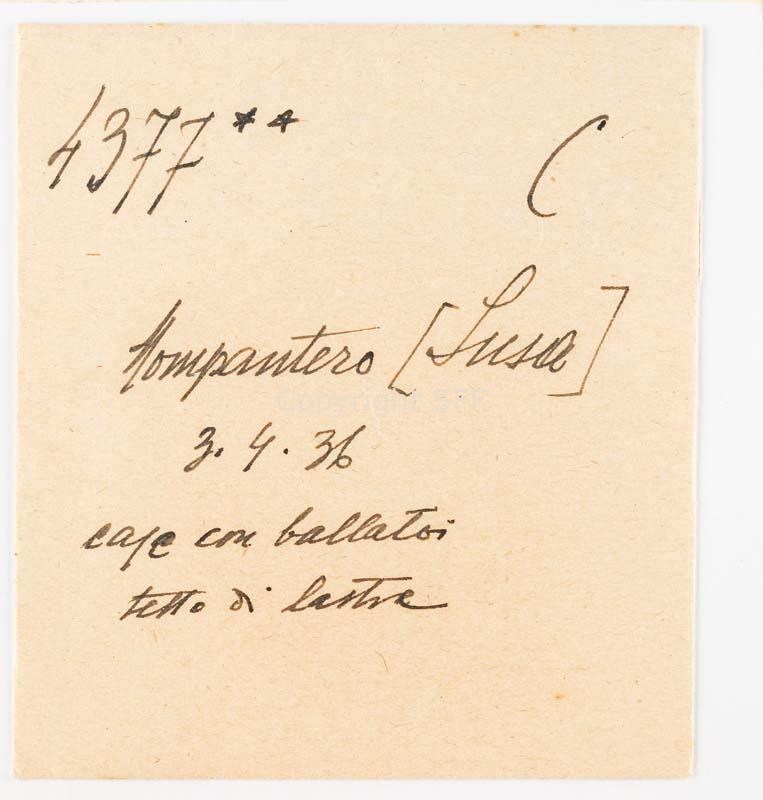 4377** C
Mompantero [Susa]
3.4.36
case con ballatoi
tetto di lastre